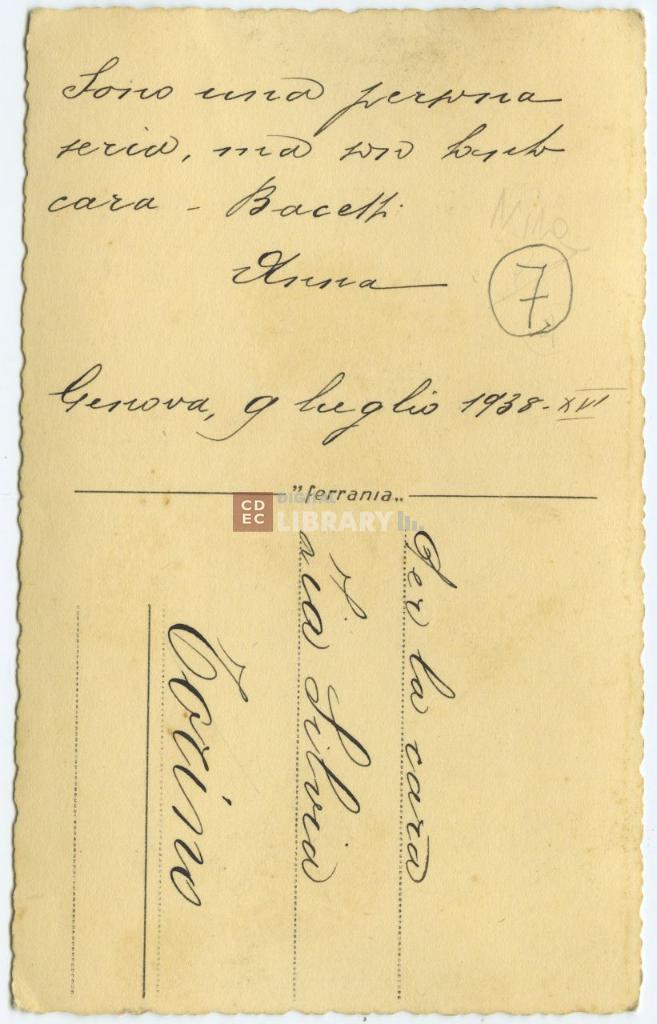 Sono una persona
seria, ma son tanto
cara - Bacetti
Anna
7
Genova, 9 luglio 1938 - XVI
"ferrania„
CDEC DIGITAL LIBRARY
Per la cara
Zia Silvia
Torino